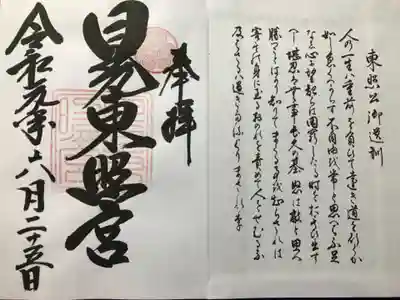 東照公御遺訓
人の一生は重荷を負ひて遠き道を行くが
如し急ぐべからず不自由を常と思へば不足
なし心に望起らば困窮したる時を思ひ出す
べし堪忍は無事長久の基怒は敵と思へ
勝つことばかり知りてまくる事を知らざれば
害其の身に至るおのれを責めて人をせむるな
及ばざるは過ぎたるよりまされり
奉拝
日光東照宮
令和元年八月二十五日